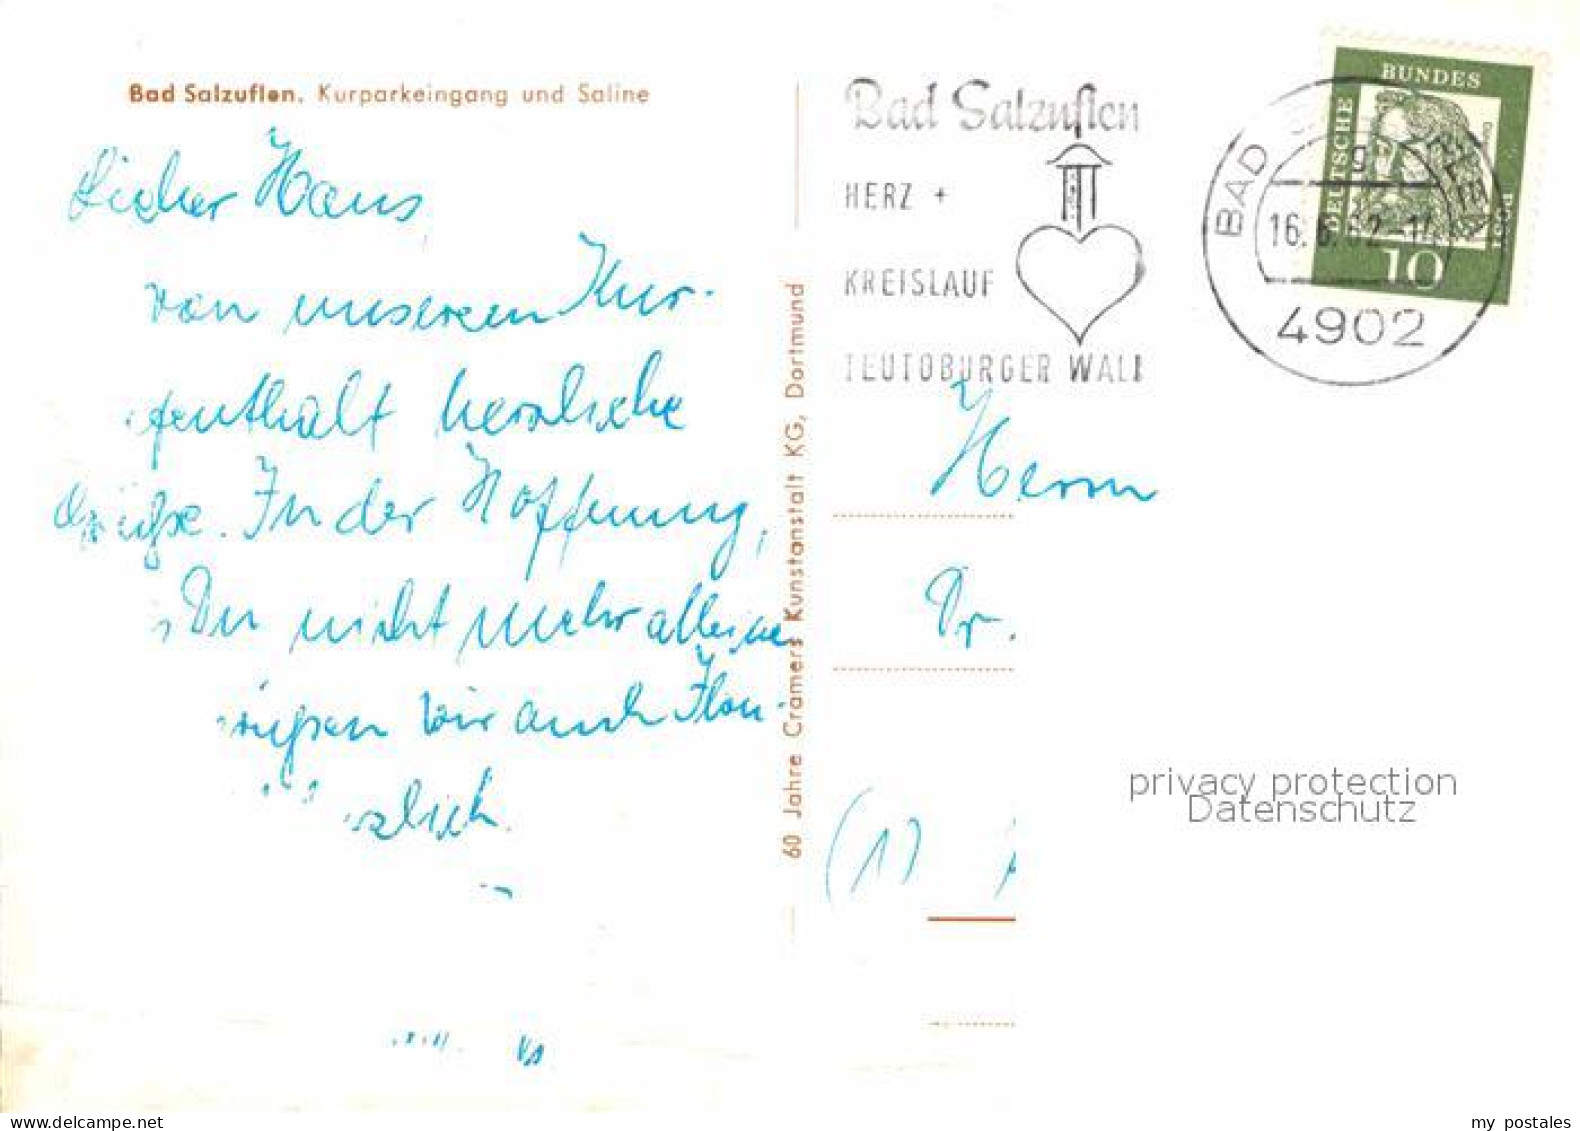 Bad Salzuflen. Kurparkeingang und Saline
Lieber Hans,
von unserem Kur-
enthalt herzliche
Grüße. In der Hoffnung,
Du nicht mehr alleine
grüßen wir auch Ilon
zlich.
60 Jahre Cramers Kunstanstalt KG, Dortmund
Bad Salzuflen
HERZ +
KREISLAUF
TEUTOBURGER WALD
BAD
g
16. 6. 62-14
4902
DEUTSCHE
BUNDES
POST
10
Herrn
Dr.
(1)
privacy protection
Datenschutz
www.delcampe.net
my postales